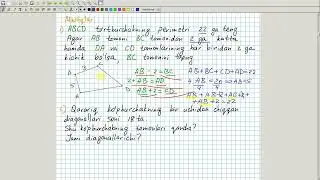 Mashqlar
ABCD to'rtburchakning perimetri 22 ga teng
Agar AB tomoni BC tomondan 2 ga katta
hamda DA va CD tomonlarning har biridan 2 ga
kichik bo'lsa BC tomonini toping
AB - 2 = BC
2 + AB = AD
AB + 2 = CD
AB + BC + CD + AD = 22
4 AB = 20
AB + AB - 2 + AB + 2 +
+ AB + 2 = 22
B
C
A
D
Qavariq ko'pburchakning bir uchidan chiqqan
diagonallari soni 18 ta
Shu ko'pburchakning tomonlari qancha?
Jami diagonallarichi?